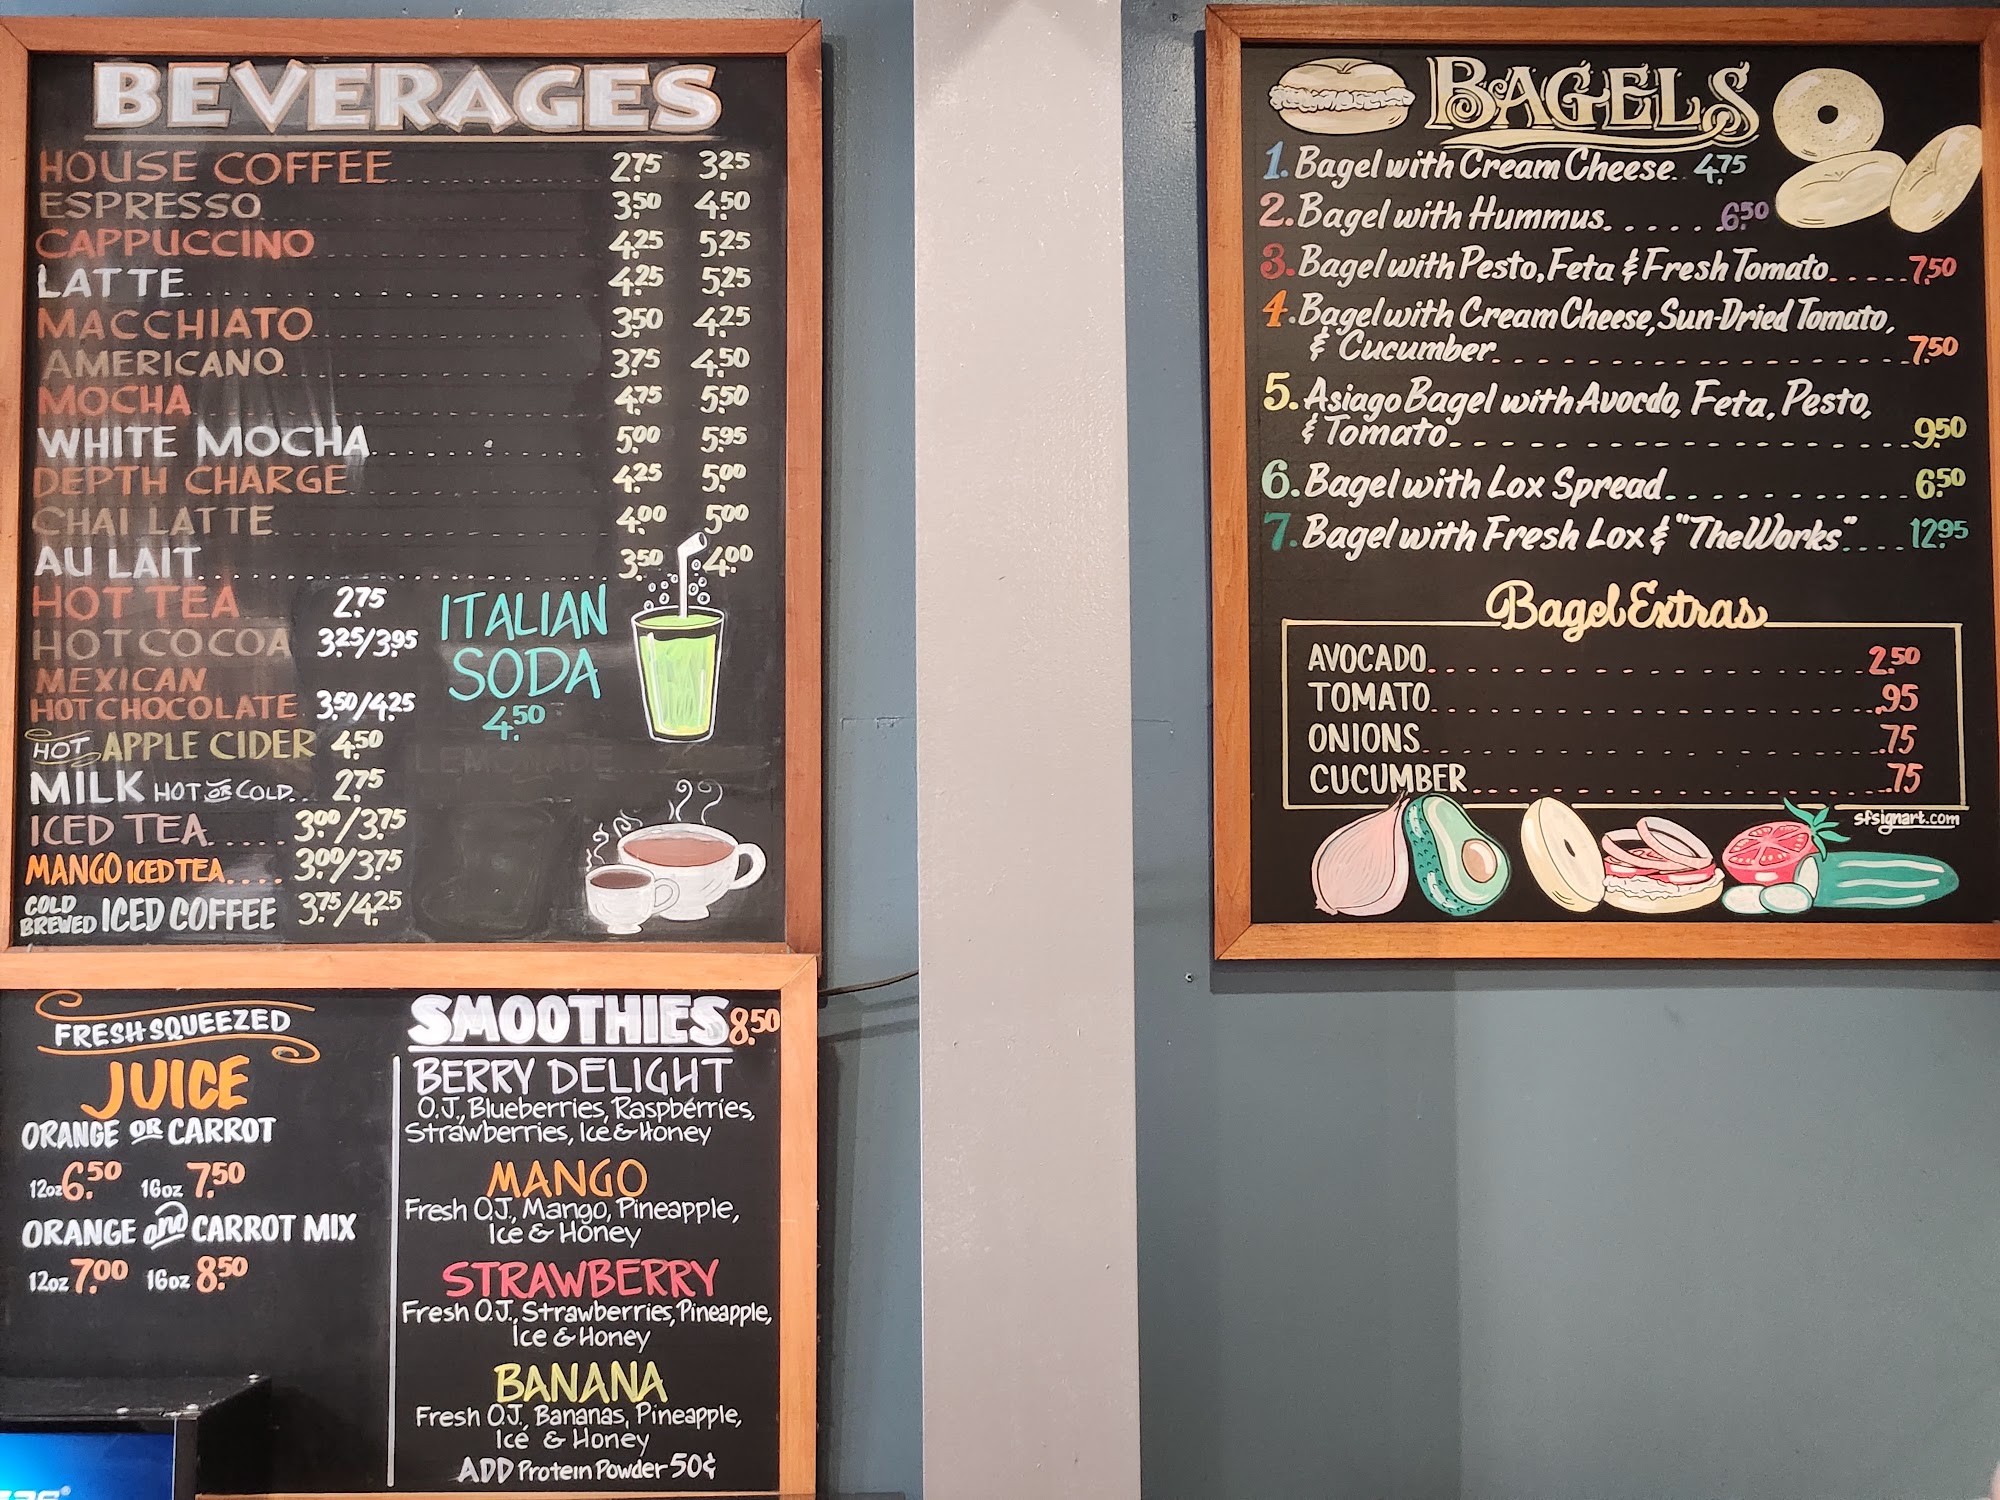 BEVERAGES
HOUSE COFFEE 2.75 3.25
ESPRESSO 3.50 4.50
CAPPUCCINO 4.25 5.25
LATTE 4.25 5.25
MACCHIATO 3.50 4.25
AMERICANO 3.75 4.50
MOCHA 4.75 5.50
WHITE MOCHA 5.00 5.95
DEPTH CHARGE 4.25 5.00
CHAI LATTE 4.00 5.00
AU LAIT 3.50 4.00
HOT TEA 2.75
HOT COCOA 3.25/3.95
MEXICAN
HOT CHOCOLATE 3.50/4.25
HOT APPLE CIDER 4.50
MILK HOT OR COLD 2.75
ICED TEA 3.00/3.75
MANGO ICED TEA 3.00/3.75
COLD
BREWED ICED COFFEE 3.75/4.25
ITALIAN
SODA
4.50
LEMONADE
FRESH SQUEEZED
JUICE
ORANGE OR CARROT
12oz 6.50 16oz 7.50
ORANGE and CARROT MIX
12oz 7.00 16oz 8.50
SMOOTHIES 8.50
BERRY DELIGHT
O.J., Blueberries, Raspberries,
Strawberries, Ice & Honey
MANGO
Fresh O.J., Mango, Pineapple,
Ice & Honey
STRAWBERRY
Fresh O.J., Strawberries, Pineapple,
Ice & Honey
BANANA
Fresh O.J., Bananas, Pineapple,
Ice & Honey
ADD Protein Powder 50¢
BAGELS
1. Bagel with Cream Cheese 4.75
2. Bagel with Hummus 6.50
3. Bagel with Pesto, Feta & Fresh Tomato 7.50
4. Bagel with Cream Cheese, Sun-Dried Tomato,
& Cucumber 7.50
5. Asiago Bagel with Avocdo, Feta, Pesto,
& Tomato 9.50
6. Bagel with Lox Spread 6.50
7. Bagel with Fresh Lox & "The Works" 12.95
Bagel Extras
AVOCADO 2.50
TOMATO .95
ONIONS .75
CUCUMBER .75
sfsignart.com